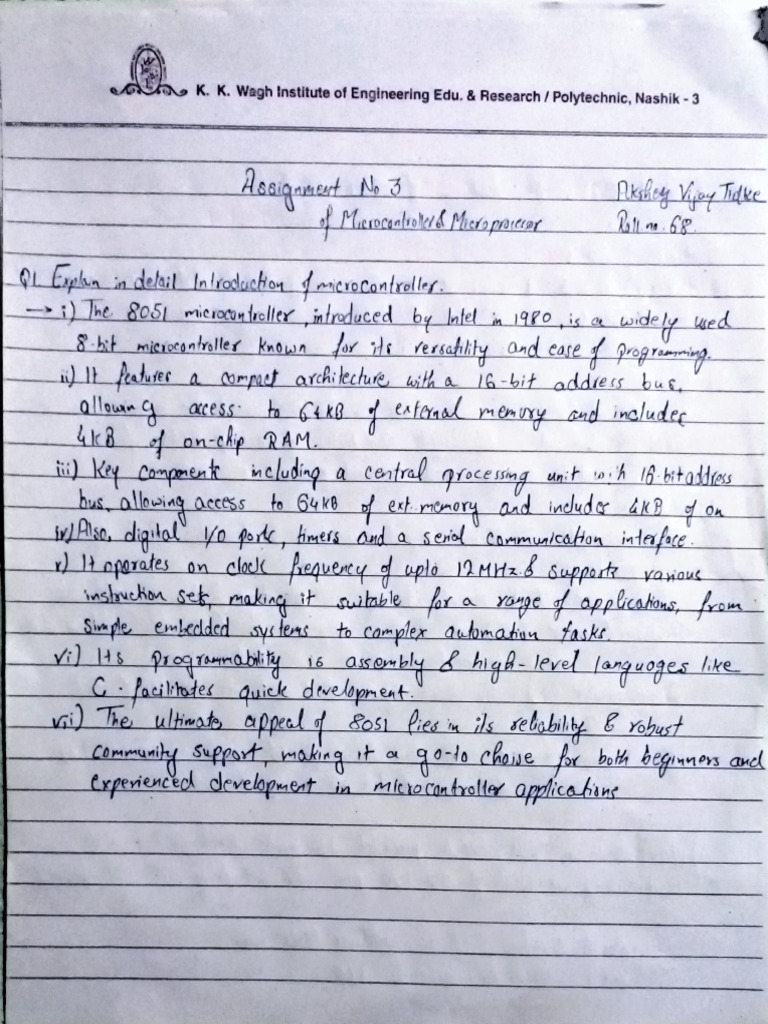 K. K. Wagh Institute of Engineering Edu. & Research / Polytechnic, Nashik - 3
Assignment No 3
Akshay Vijay Tidke
of Microcontroller & Microprocessor
Roll no. 68.
Q1. Explan in detail Introduction of microcontroller.
→ i) The 8051 microcontroller, introduced by Intel in 1980, is a widely used
8-bit microcontroller known for its versatility and ease of programming.
ii) It features a compact architecture with a 16-bit address bus,
allowing access to 64KB of external memory and includes
4KB of on-chip RAM.
iii) Key components including a central processing unit with 16-bit address
bus, allowing access to 64KB of ext. memory and includes 4KB of on
iv) Also, digital I/O ports, timers and a serial communication interface.
v) It operates on clock frequency of upto 12MHz & supports various
instruction sets, making it suitable for a range of applications, from
simple embedded systems to complex automation tasks.
vi) Its programmability is assembly & high-level languages like
C. facilitates quick development.
vii) The ultimate appeal of 8051 lies in its reliability & robust
community support, making it a go-to choise for both beginners and
experienced development in microcontroller applications